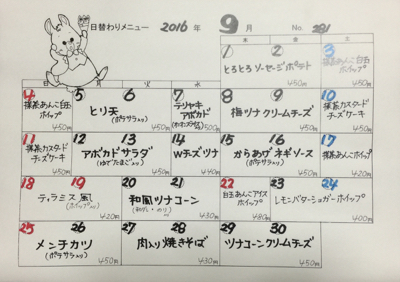 日替わりメニュー 2016年 9月 No. 281
日 月 火 水 木 金 土
1 2 3
とろとろソーセージポテト
抹茶あんこ白玉
ホイップ
450円 450円 450円
4 5 6 7 8 9 10
抹茶あんこ白玉
ホイップ
とり天
(ポテサラ入り)
テリヤキ
アボカド
梅ツナクリームチーズ
抹茶カスタード
チーズケーキ
450円 450円 500円 450円 450円
11 12 13 14 15 16 17
抹茶カスタード
チーズケーキ
アボカドサラダ
(ゆでたまご入り)
Wチーズツナ
からあげネギソース
(ポテサラ入り)
抹茶あんこホイップ
450円 450円 440円 450円 420円
18 19 20 21 22 23 24
ティラミス風
(ホイップ入り)
和風ツナコーン
白玉あんこアイス
ホイップ
レモンバターシュガーホイップ
420円 430円 480円 400円
25 26 27 28 29 30
メンチカツ
(ポテサラ入り)
肉入り焼きそば
ツナコーンクリームチーズ
450円 430円 450円